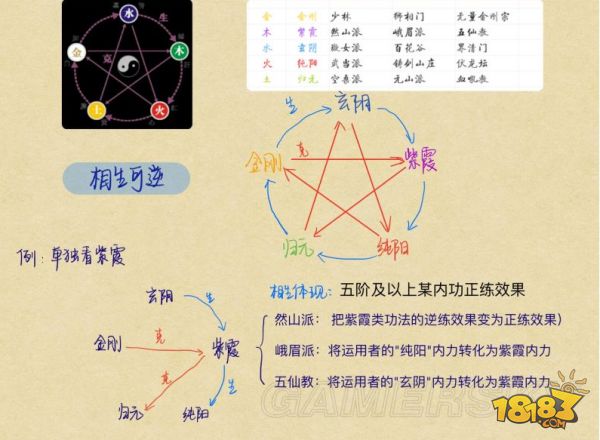 水
生
金
木
克
土
火
金 金刚 少林 狮相门 元童金刚宗
木 紫霞 然山派 峨眉派 五仙教
水 玄阴 璇女派 百花谷 界清门
火 纯阳 武当派 铸剑山庄 伏龙坛
土 归元 空桑派 元山派 血吼教
生
玄阴
克
金刚
紫霞
归元
纯阳
相生可逆
例：单独看紫霞
玄阴
生
金刚
克
紫霞
克
生
归元
纯阳
相生体现：五阶及以上某内功正练效果
然山派：把紫霞类功法的逆练效果变为正练效果)
峨眉派：将运用者的"纯阳"内力转化为紫霞内力
五仙教：将运用者的"玄阴"内力转化为紫霞内力
GAMERS
18183
.com